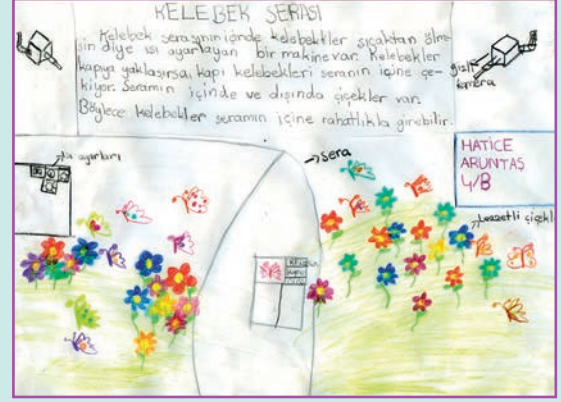 KELEBEK SERASI
Kelebek serasının içinde kelebekler sıcaktan ölme-
sin diye ısı ayarlayan bir makine var. Kelebekler
kapıya yaklaşırsa kapı kelebekleri seranın içine çe-
kiyor. Seramın içinde ve dışında çiçekler var.
Böylece kelebekler seramın içine rahatlıkla girebilir.
gizli
kamera
ısı ayarları
sera
HATİCE
ARUNTAŞ
4/B
Lezzetli çiçekl